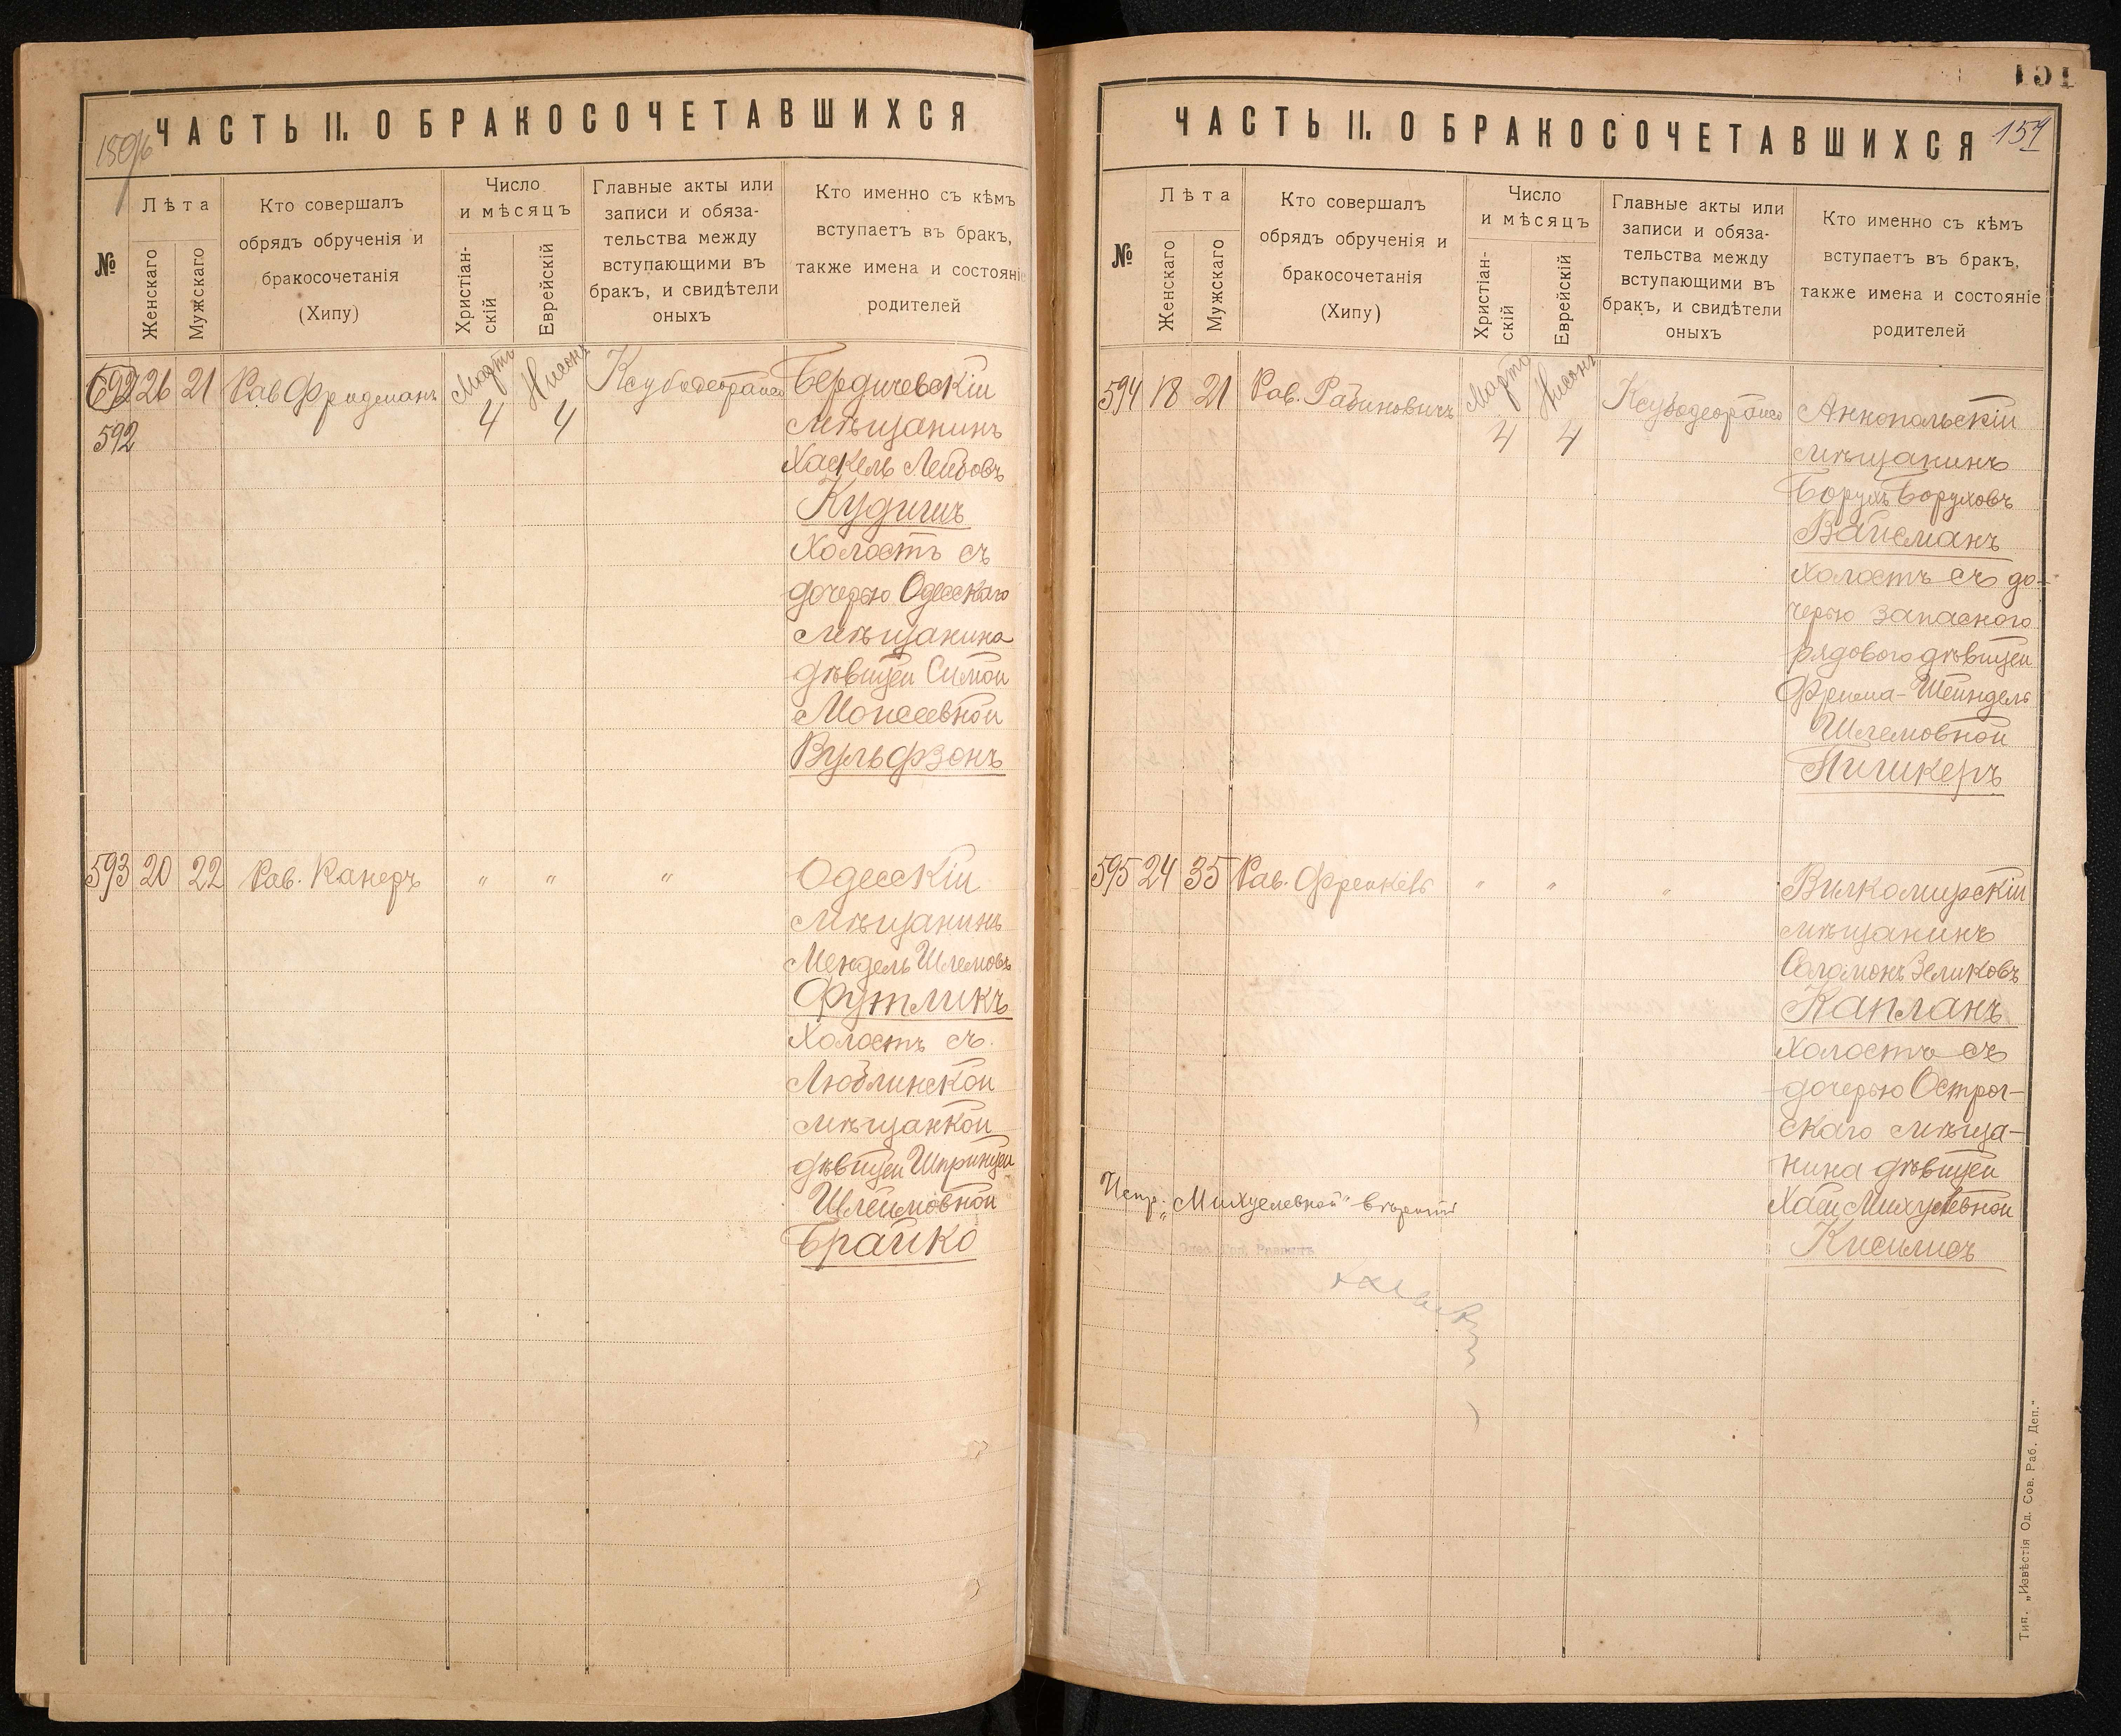 ЧАСТЬ II. О БРАКОСОЧЕТАВШИХСЯ
№
Лѣта
Женскаго
Мужскаго
Кто совершалъ
обрядъ обрученія и
бракосочетанія
(Хипу)
Число
и мѣсяцъ
Христіан-
скій
Еврейскій
Главные акты или
записи и обяза-
тельства между
вступающими въ
бракъ, и свидѣтели
оныхъ
Кто именно съ кѣмъ
вступаетъ въ бракъ,
также имена и состояніе
родителей
592 26 21 Рав Фридманъ Мартъ 4 Нисонъ 4
592
Бердичевскій
мѣщанинъ
Хаскель Лейбовъ
Кудишъ
Холостъ съ
дочерью Одесскаго
мѣщанина
дѣвицей Симой
Моисеевной
Вульфзонъ
593 20 22 Рав. Канеръ " " "
Одесскій
мѣщанинъ
Мендель Шлемовъ
Футликъ
Холостъ съ
Люблинской
мѣщанкой
дѣвицей Шпринцей
Шлеймовной
Брайко
151
ЧАСТЬ II. О БРАКОСОЧЕТАВШИХСЯ
№
Лѣта
Женскаго
Мужскаго
Кто совершалъ
обрядъ обрученія и
бракосочетанія
(Хипу)
Число
и мѣсяцъ
Христіан-
скій
Еврейскій
Главные акты или
записи и обяза-
тельства между
вступающими въ
бракъ, и свидѣтели
оныхъ
Кто именно съ кѣмъ
вступаетъ въ бракъ,
также имена и состояніе
родителей
594 18 21 Рав. Рабиновичъ Мартъ 4 Нисонъ 4
Аннопольскій
мѣщанинъ
Борухъ Боруховъ
Вайсманъ
холостъ съ до-
черью запаснаго
рядового дѣвицей
Фрима-Шейндель
Шлемовной
Пишкеръ
595 24 35 Рав. Френкель " " "
Вилкомирскій
мѣщанинъ
Соломонъ Зеликовъ
Капланъ
Холостъ съ
дочерью Острог-
скаго мѣща-
нина дѣвицей
Хаей Михулевной
Кисилисъ
Испр. „Михуелевной"
Тип. „Извѣстія Од. Сов. Раб. Деп."